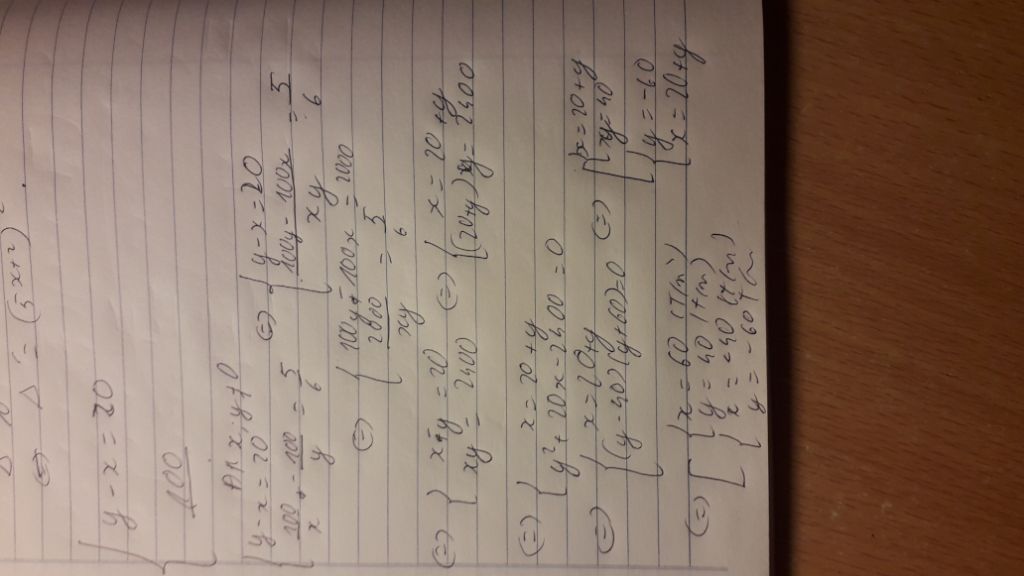 ⇔ Δ' = (5x+2)²
{ y - x = 20
100
ĐK x; y ≠ 0
{ y - x = 20
100/x - 100/y = 5/6
⇔ { y - x = 20
(100y - 100x)/xy = 5/6
⇔ { 100y - 100x = 2000
2000/xy = 5/6
⇔ { x - y = 20
xy = 2400
⇔ { x = 20 + y
(20+y)y = 2400
⇔ { x = 20 + y
y² + 20x - 2400 = 0
⇔ { x = 20 + y
(y - 40)(y + 60) = 0
⇔ [ { x = 20 + y
y = 40
{ y = -60
x = 20 + y
⇔ [ { x = 60 (T/m)
y = 40 (T/m)
{ x = -40 (T/m)
y = -60